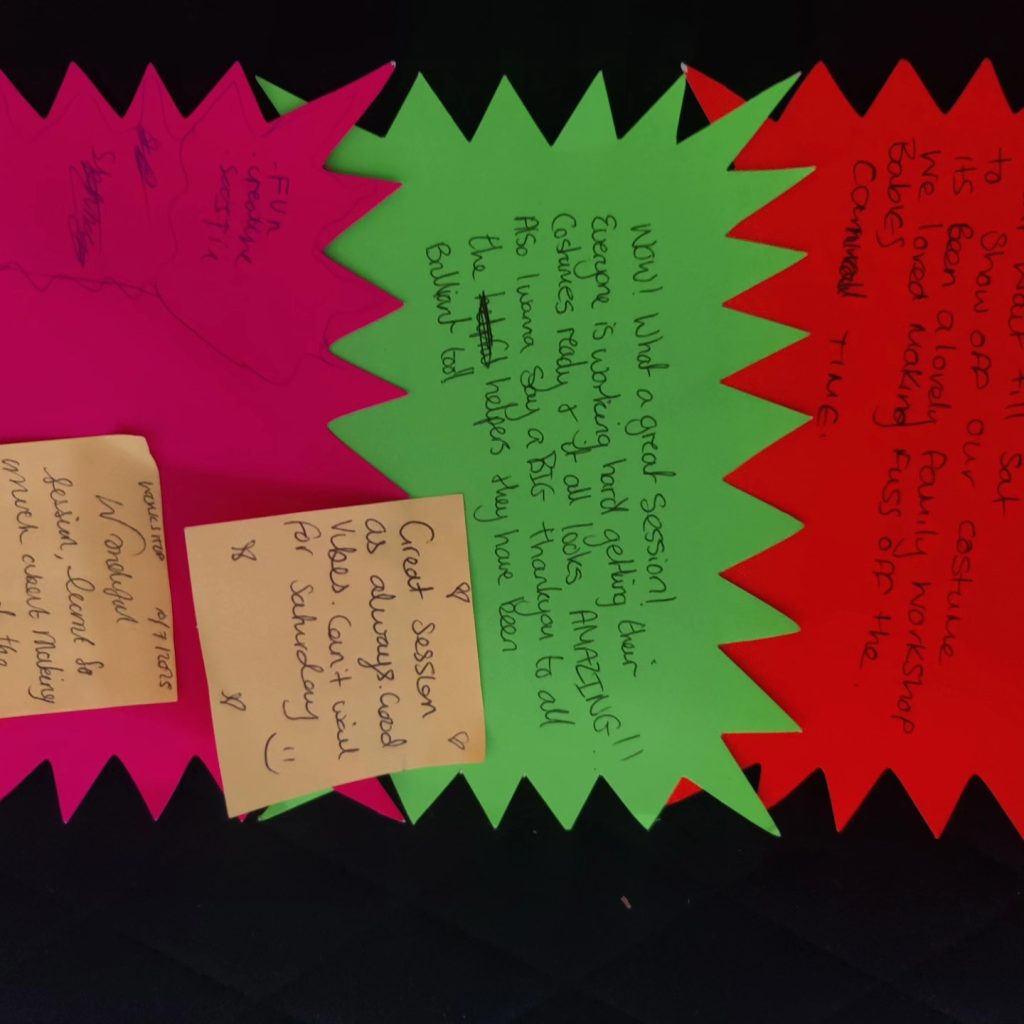 wait till Sat
to show off our costume
its Been a lovely family workshop
We loved making Fuss off the
Babies
Carnival TIME.
WOW! What a great Session!
Everyone is working hard getting their
Costumes ready & it all looks AMAZING!!
Also I wanna Say a BIG thankyou to all
the helpers they have been
Brilliant too!!
Great Session
as always. Good
Vibes. Can't wait
for Saturday
- Fun
- creative
WORKSHOP 10/7/2025
Wonderful
session, learnt so
much about making
the